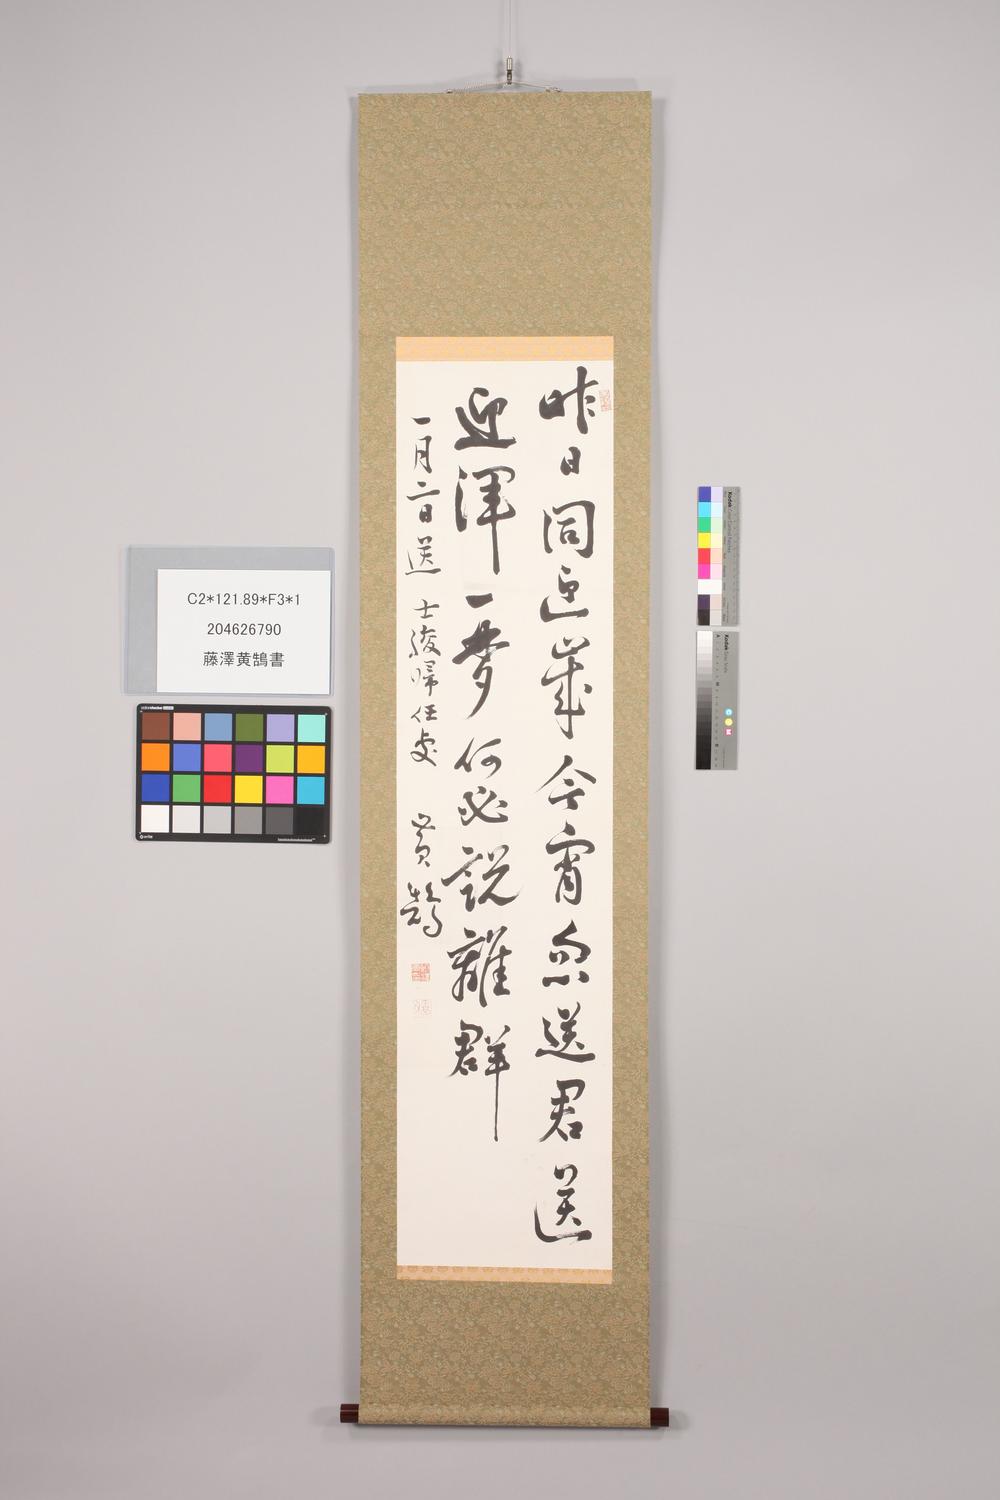 昨日同迎歳今宵忽送君送
迎渾一夢何必説離群
一月二日送 士駿帰任處
黄鵠
C2*121.89*F3*1
204626790
藤澤黄鵠書
Kodak
Kodak